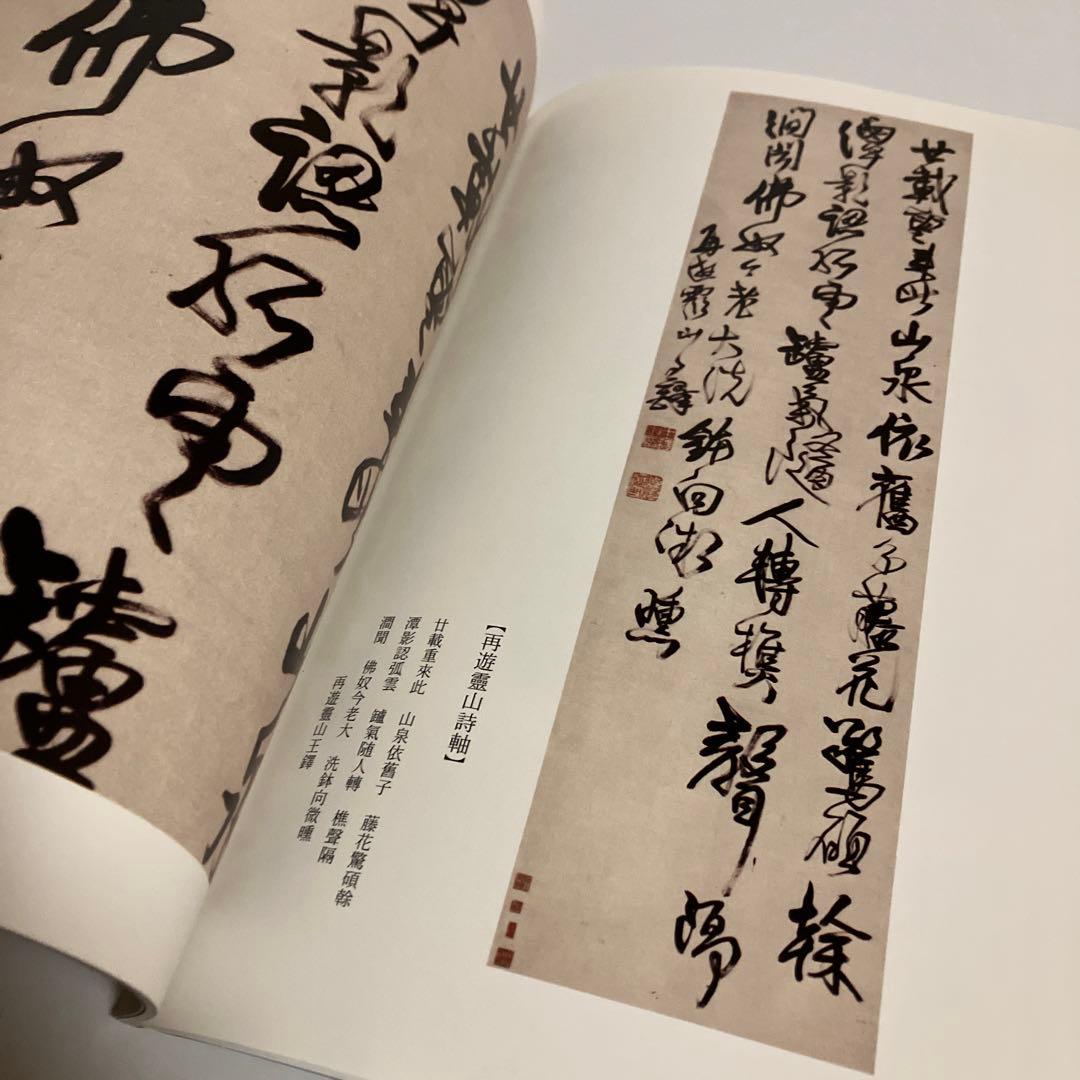 廿載重來此山泉依舊子藤花驚碩榦
潭影認孤雲罏氣隨人轉樵聲隔
澗聞佛奴今老大洗鉢向微曛
再遊靈山王鐸
【再遊靈山詩軸】
廿載重來此　山泉依舊子　藤花驚碩榦
潭影認弧雲　罏氣随人轉　樵聲隔
澗聞　佛奴今老大　洗鉢向微曛
再遊靈山王鐸
影認孤雲罏
佛奴